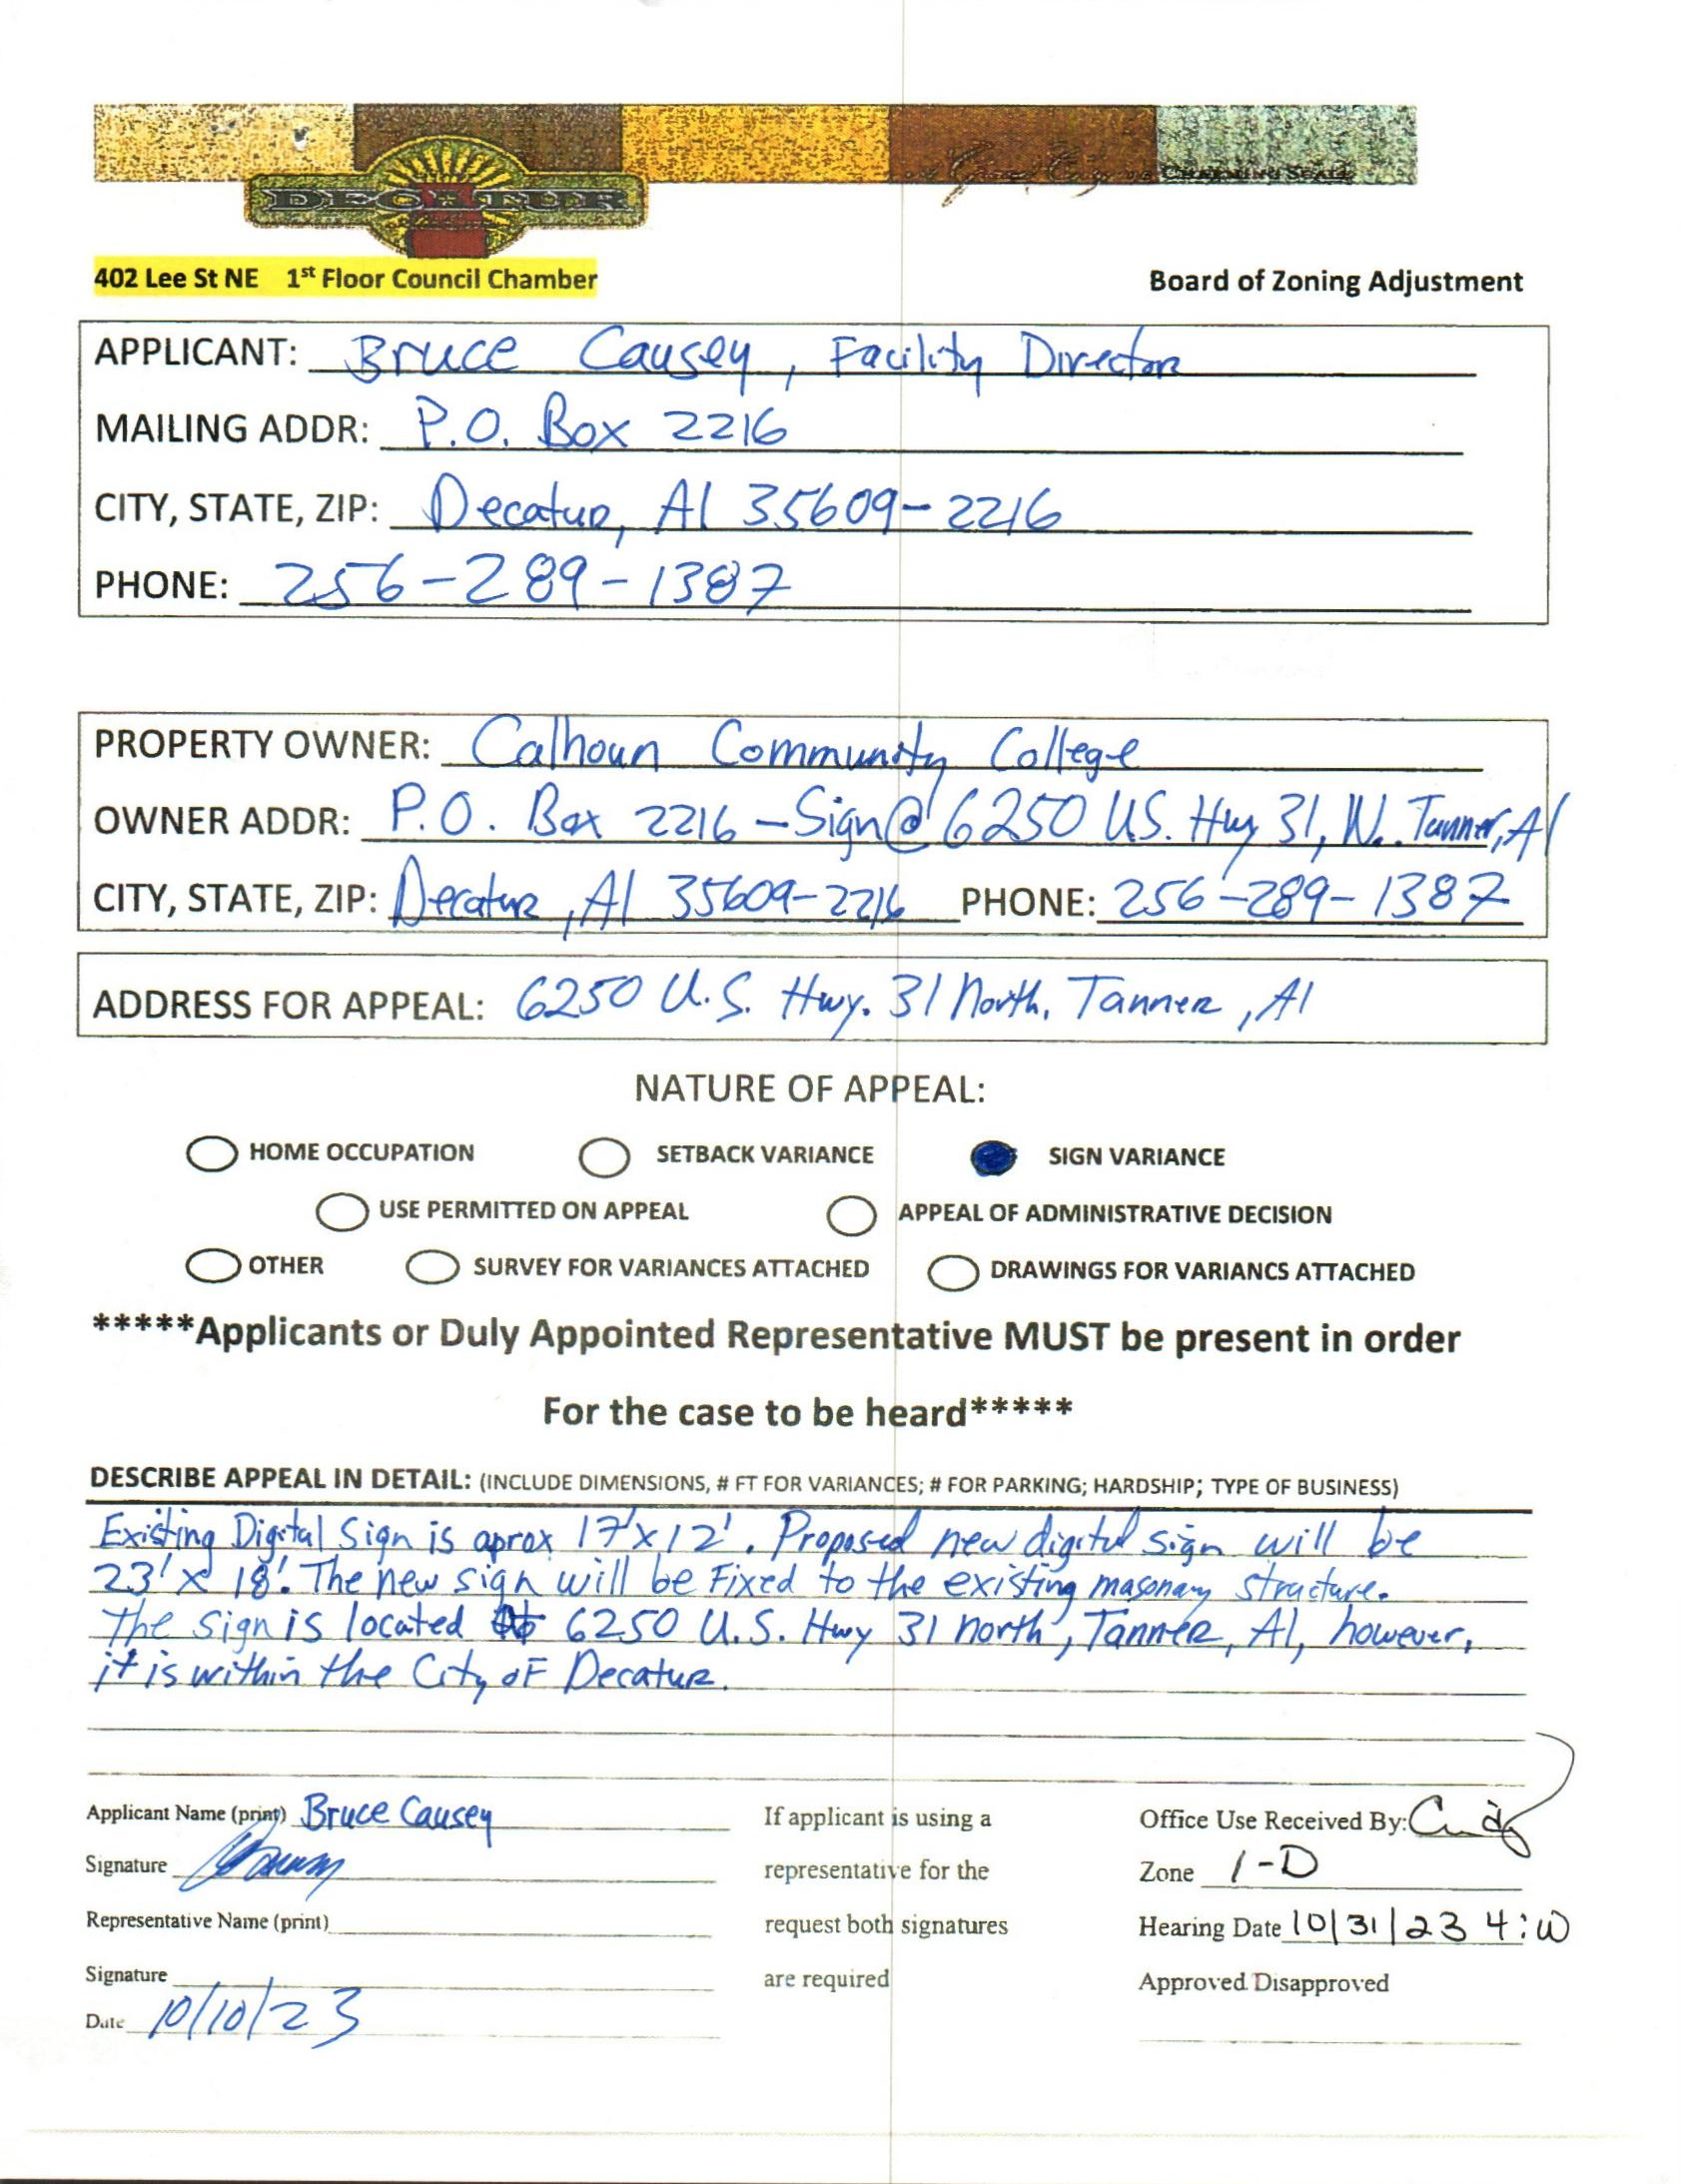 DECATUR
402 Lee St NE 1st Floor Council Chamber
Board of Zoning Adjustment
APPLICANT: Bruce Causey, Facility Director
MAILING ADDR: P.O. Box 2216
CITY, STATE, ZIP: Decatur, Al 35609-2216
PHONE: 256-289-1387
PROPERTY OWNER: Calhoun Community College
OWNER ADDR: P.O. Box 2216 - Sign @ 6250 U.S. Hwy 31, N. Tanner, Al
CITY, STATE, ZIP: Decatur, Al 35609-2216 PHONE: 256-289-1387
ADDRESS FOR APPEAL: 6250 U.S. Hwy. 31 North, Tanner, Al
NATURE OF APPEAL:
HOME OCCUPATION SETBACK VARIANCE SIGN VARIANCE
USE PERMITTED ON APPEAL APPEAL OF ADMINISTRATIVE DECISION
OTHER SURVEY FOR VARIANCES ATTACHED DRAWINGS FOR VARIANCS ATTACHED
*****Applicants or Duly Appointed Representative MUST be present in order
For the case to be heard*****
DESCRIBE APPEAL IN DETAIL: (INCLUDE DIMENSIONS, # FT FOR VARIANCES; # FOR PARKING; HARDSHIP; TYPE OF BUSINESS)
Existing Digital Sign is aprox 17'x12'. Proposed new digital sign will be
23' x 18'. The new sign will be Fixed to the existing masonary structure.
The sign is located 6250 U.S. Hwy 31 north, Tanner, Al, however,
it is within the City of Decatur.
Applicant Name (print) Bruce Causey
Signature
Representative Name (print)
Signature
Date 10/10/23
If applicant is using a
representative for the
request both signatures
are required
Office Use Received By: Cindy
Zone 1-D
Hearing Date 10/31/23 4:00
Approved Disapproved